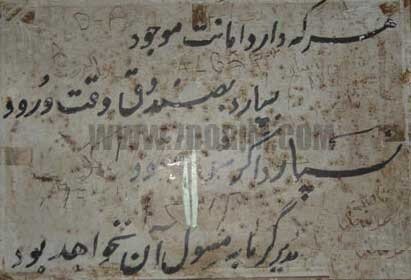 هر که دارد امانت موجود
بسپارد بصندوق وقت ورود
نسپارد اگر
مدیر گرمابه مسول آن نخواهد بود